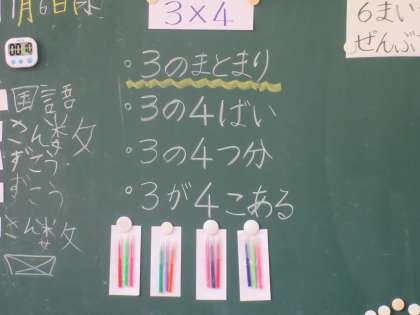 月6日
3×4
6まい
ぜんぶ
00 10
・3のまとまり
・3の4ばい
・3の4つ分
・3が4こある
国語
さん数
ずこう
ずこう
さん数